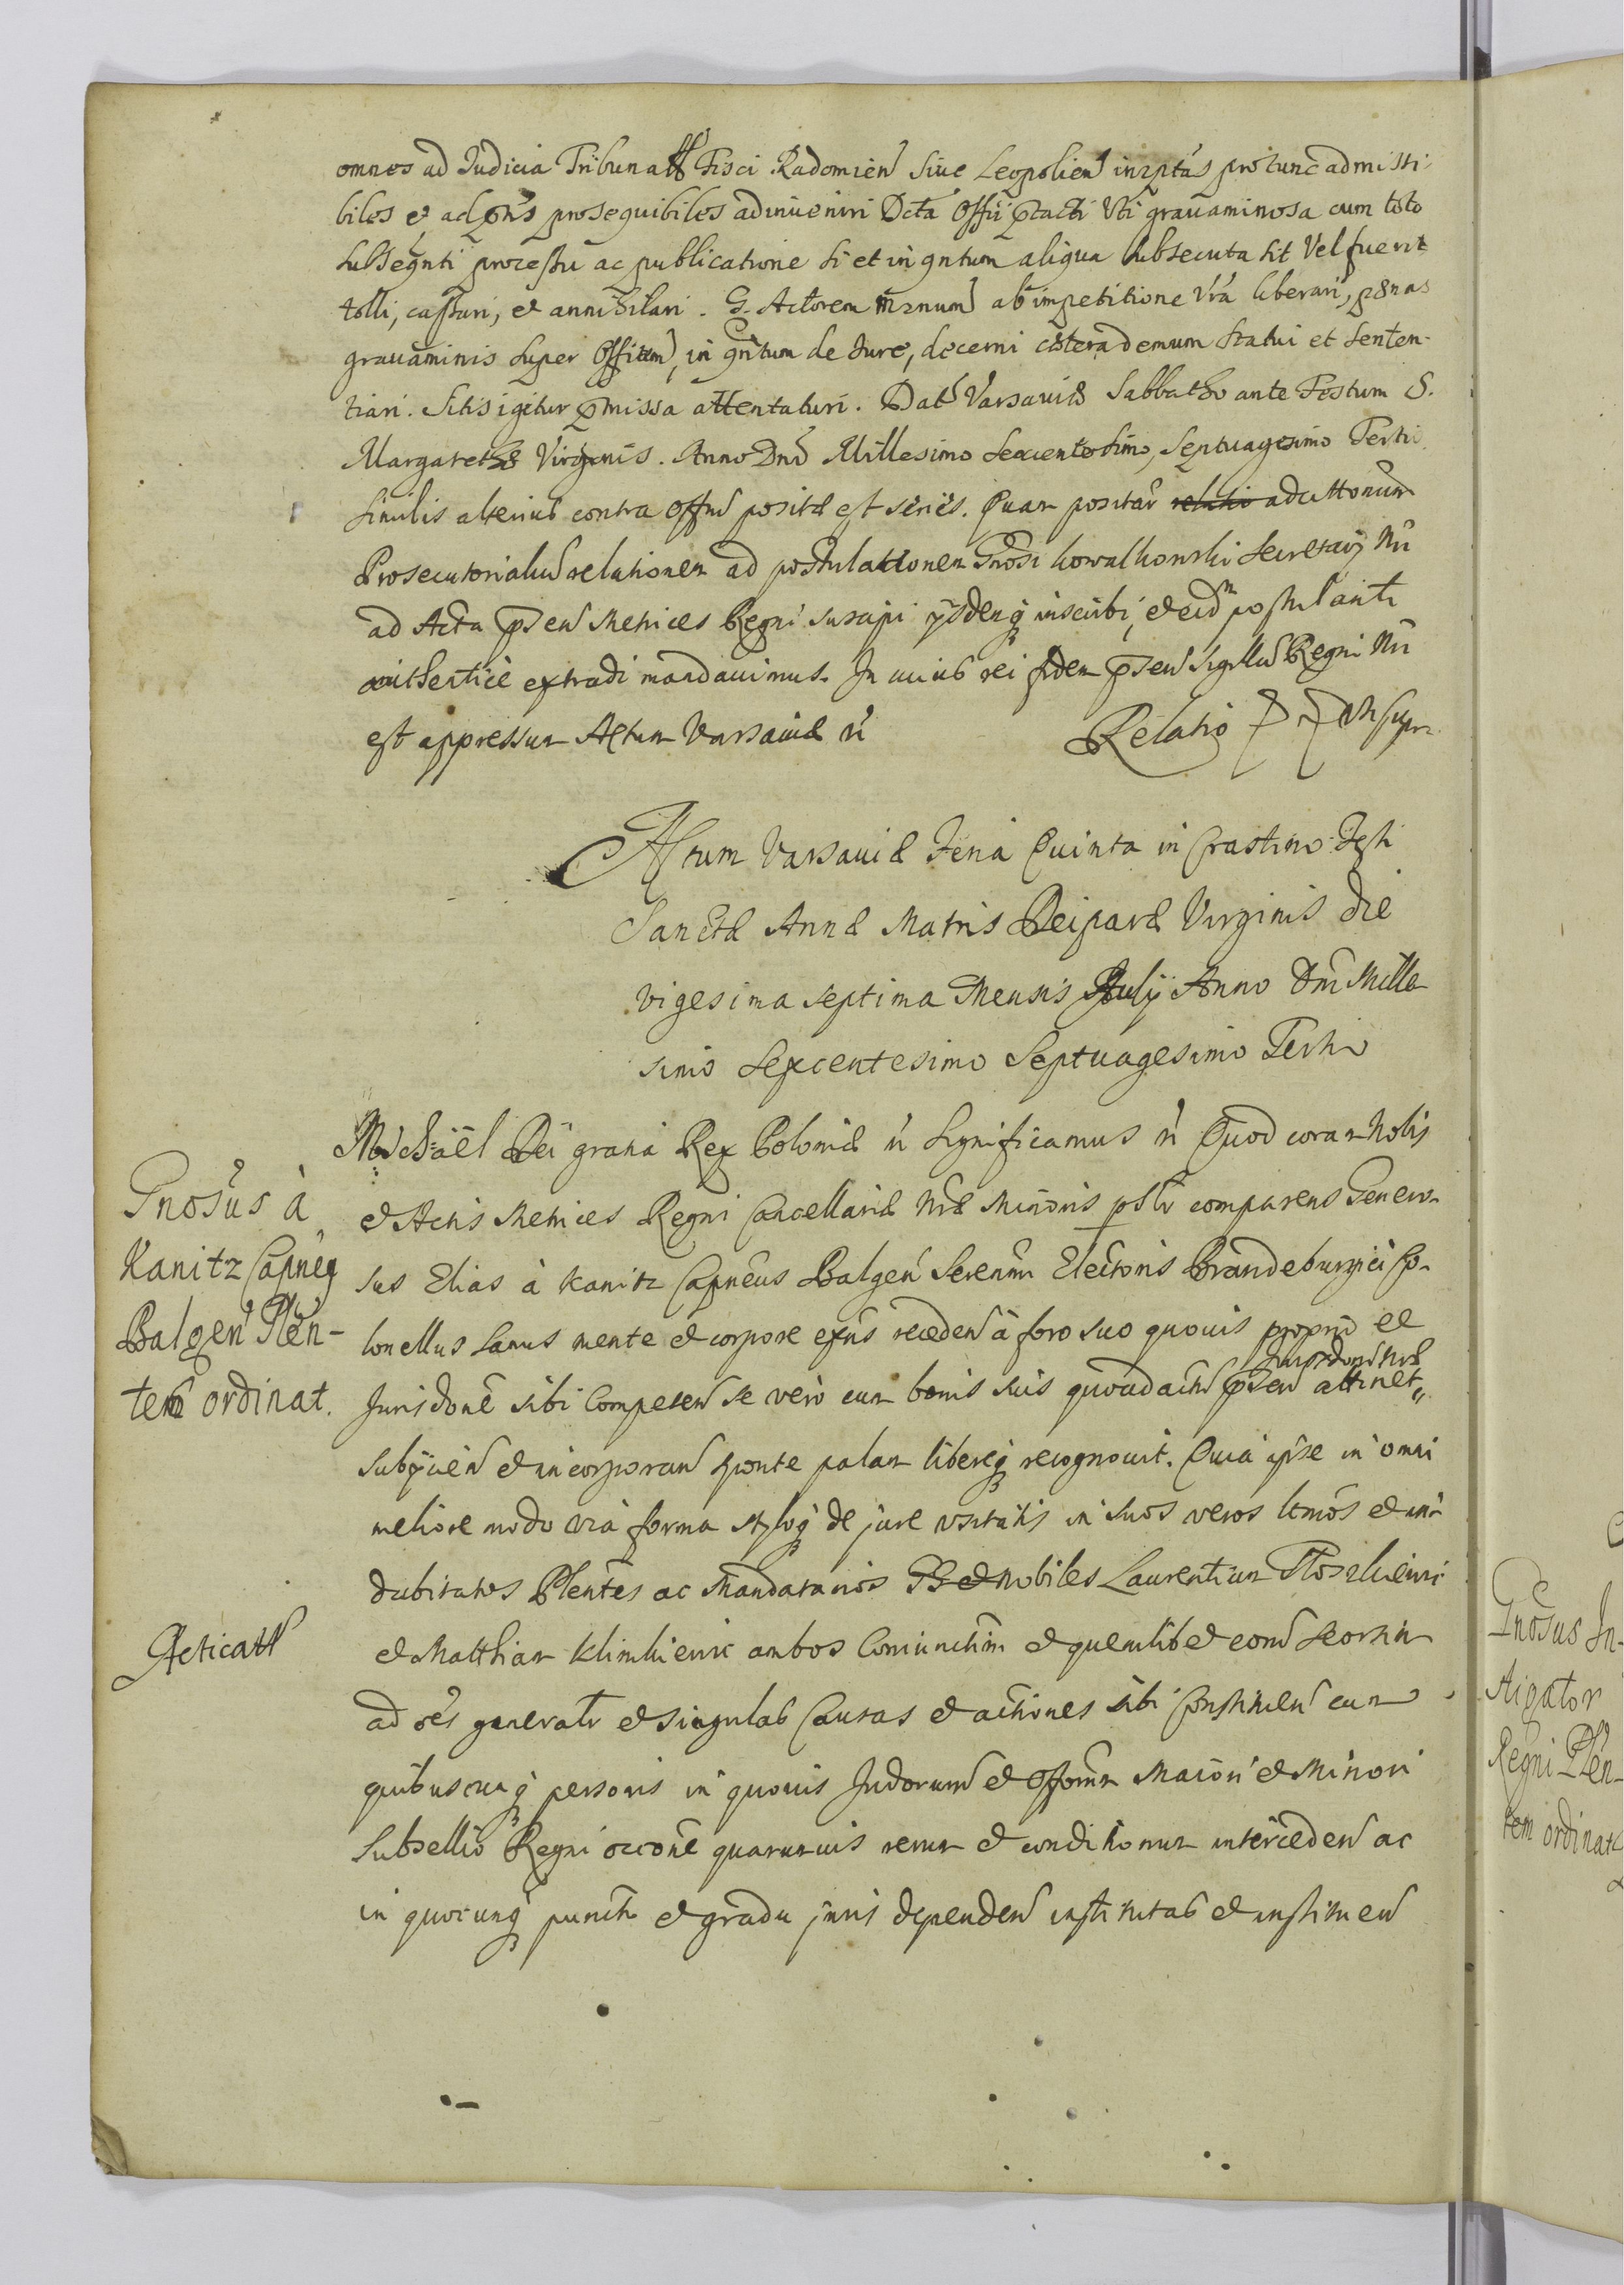 omnes ad Judicia Tribunall Fisci Radomien Siue Leopolien inrptas pro tunc admissi-
biles et ac prosequibiles adinueniri Dcta Offii ptacti Vti grauaminosa cum toto
subseqnti processu ac publicatione si et in qntum aliqua subsecuta sit Vel fuerit
tolli, cassari, et annihilari. G. Actorem ab impetitione Vra liberari, pænas
grauaminis super Offium in qntum de Jure, decerni cætera demum statui et senten-
tiari. Sitis igitur pmissa attentaturi. Dat Varsauiæ Sabbatho ante Festum S.
Margarethæ Virginis. Anno Dni Millesimo Sexcentesimo, Septuagesimo Tertio
Similis alterius contra Offm positæ est series. Quam positar relatio aducttonum
Prosecutorialiu relationem ad postulationem Gnosi Kowalkowski Secretarij Nri
ad Acta psen Metrices Regni suscipi ysdemq inscribi, et eidm postulanti
authentice extradi mandauimus. In cuius rei fidem psen Sigillu Regni Nri
est appressum Actum Varsauiæ
Relatio ut supr
Actum Varsauiæ Feria Quinta in Crastino Festi
Sanctæ Annæ Matris Deiparæ Virginis die
vigesima septima Mensis July Anno Dni Mille-
simo Sexcentesimo Septuagesimo Tertio
Michaël Dei gratia Rex Poloniæ Significamus Quod coram Nobis
et Actis Metrices Regni Cancellariæ Nræ Minoris pslr comparens Genero-
sus Elias à Kanitz Capneus Balgen Serenmi Electoris Brandeburgici Co-
lonellus sanus mente et corpore exns receden à foro suo quouis proprio et
Jurisdonis Nræ
Jurisdone sibi Competen se vero cum bonis suis quoad actu psen attinet
subijcien et incorporan sponte palam libereq recognouit. Quia ipse in omni
meliore modo via forma styloq de jure usitatis in suos veros ltmos et in-
dubitatos Plentes ac Mandatarios GG et Nobiles Laurentium
et Matthiam Klimkiewic ambos Coniunctim et quemlibet eoru seorsim
ad oes generalr et singulas Causas et actiones sibi cum
quibuscunq personis in quouis Judorum et Offiorum Maiori et Minori
Subsellio Regni occone quarumuis rerum et conditionum interceden ac
in quocunq puncto et gradu juris dependen institutas et instituen
Gnosus à
Kanitz Capneq
Balgen Plen-
tem ordinat.
Acticatt
Gnosus In-
stigator
Regni Plen-
tem ordinat